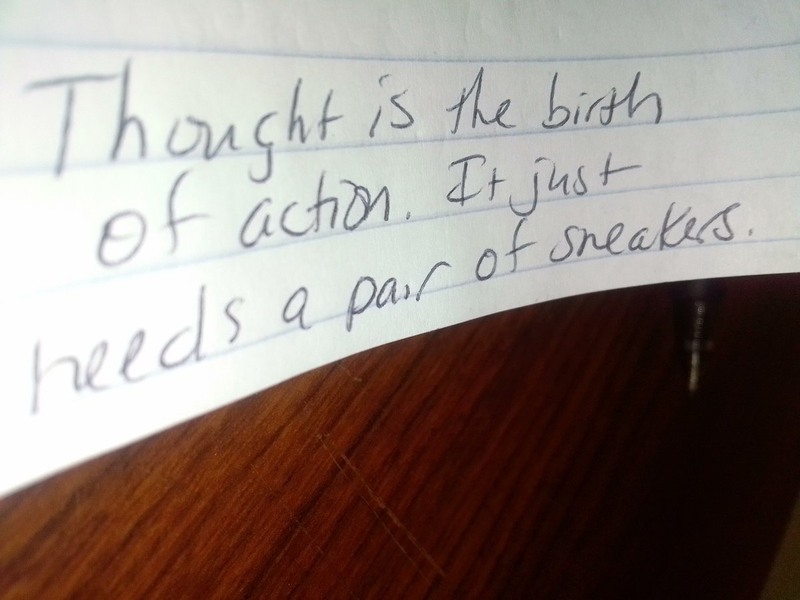 Thought is the birth
of action. It just
needs a pair of sneakers.